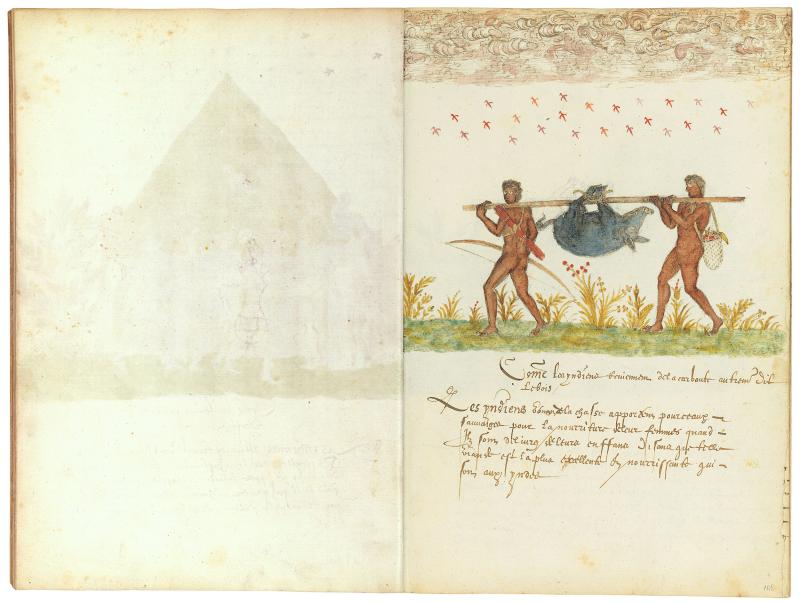 Come les yndiens reviennent de la carboute autremt dit
Le bois
Les yndiens de la chasse apportent pourceaux
sauvaiges pour la nourriture de leur femmes quand
Ilz sont delivre de leurs enffans Disans que telle
viande est la plus excellente & nourrissante qui
soit aux yndes